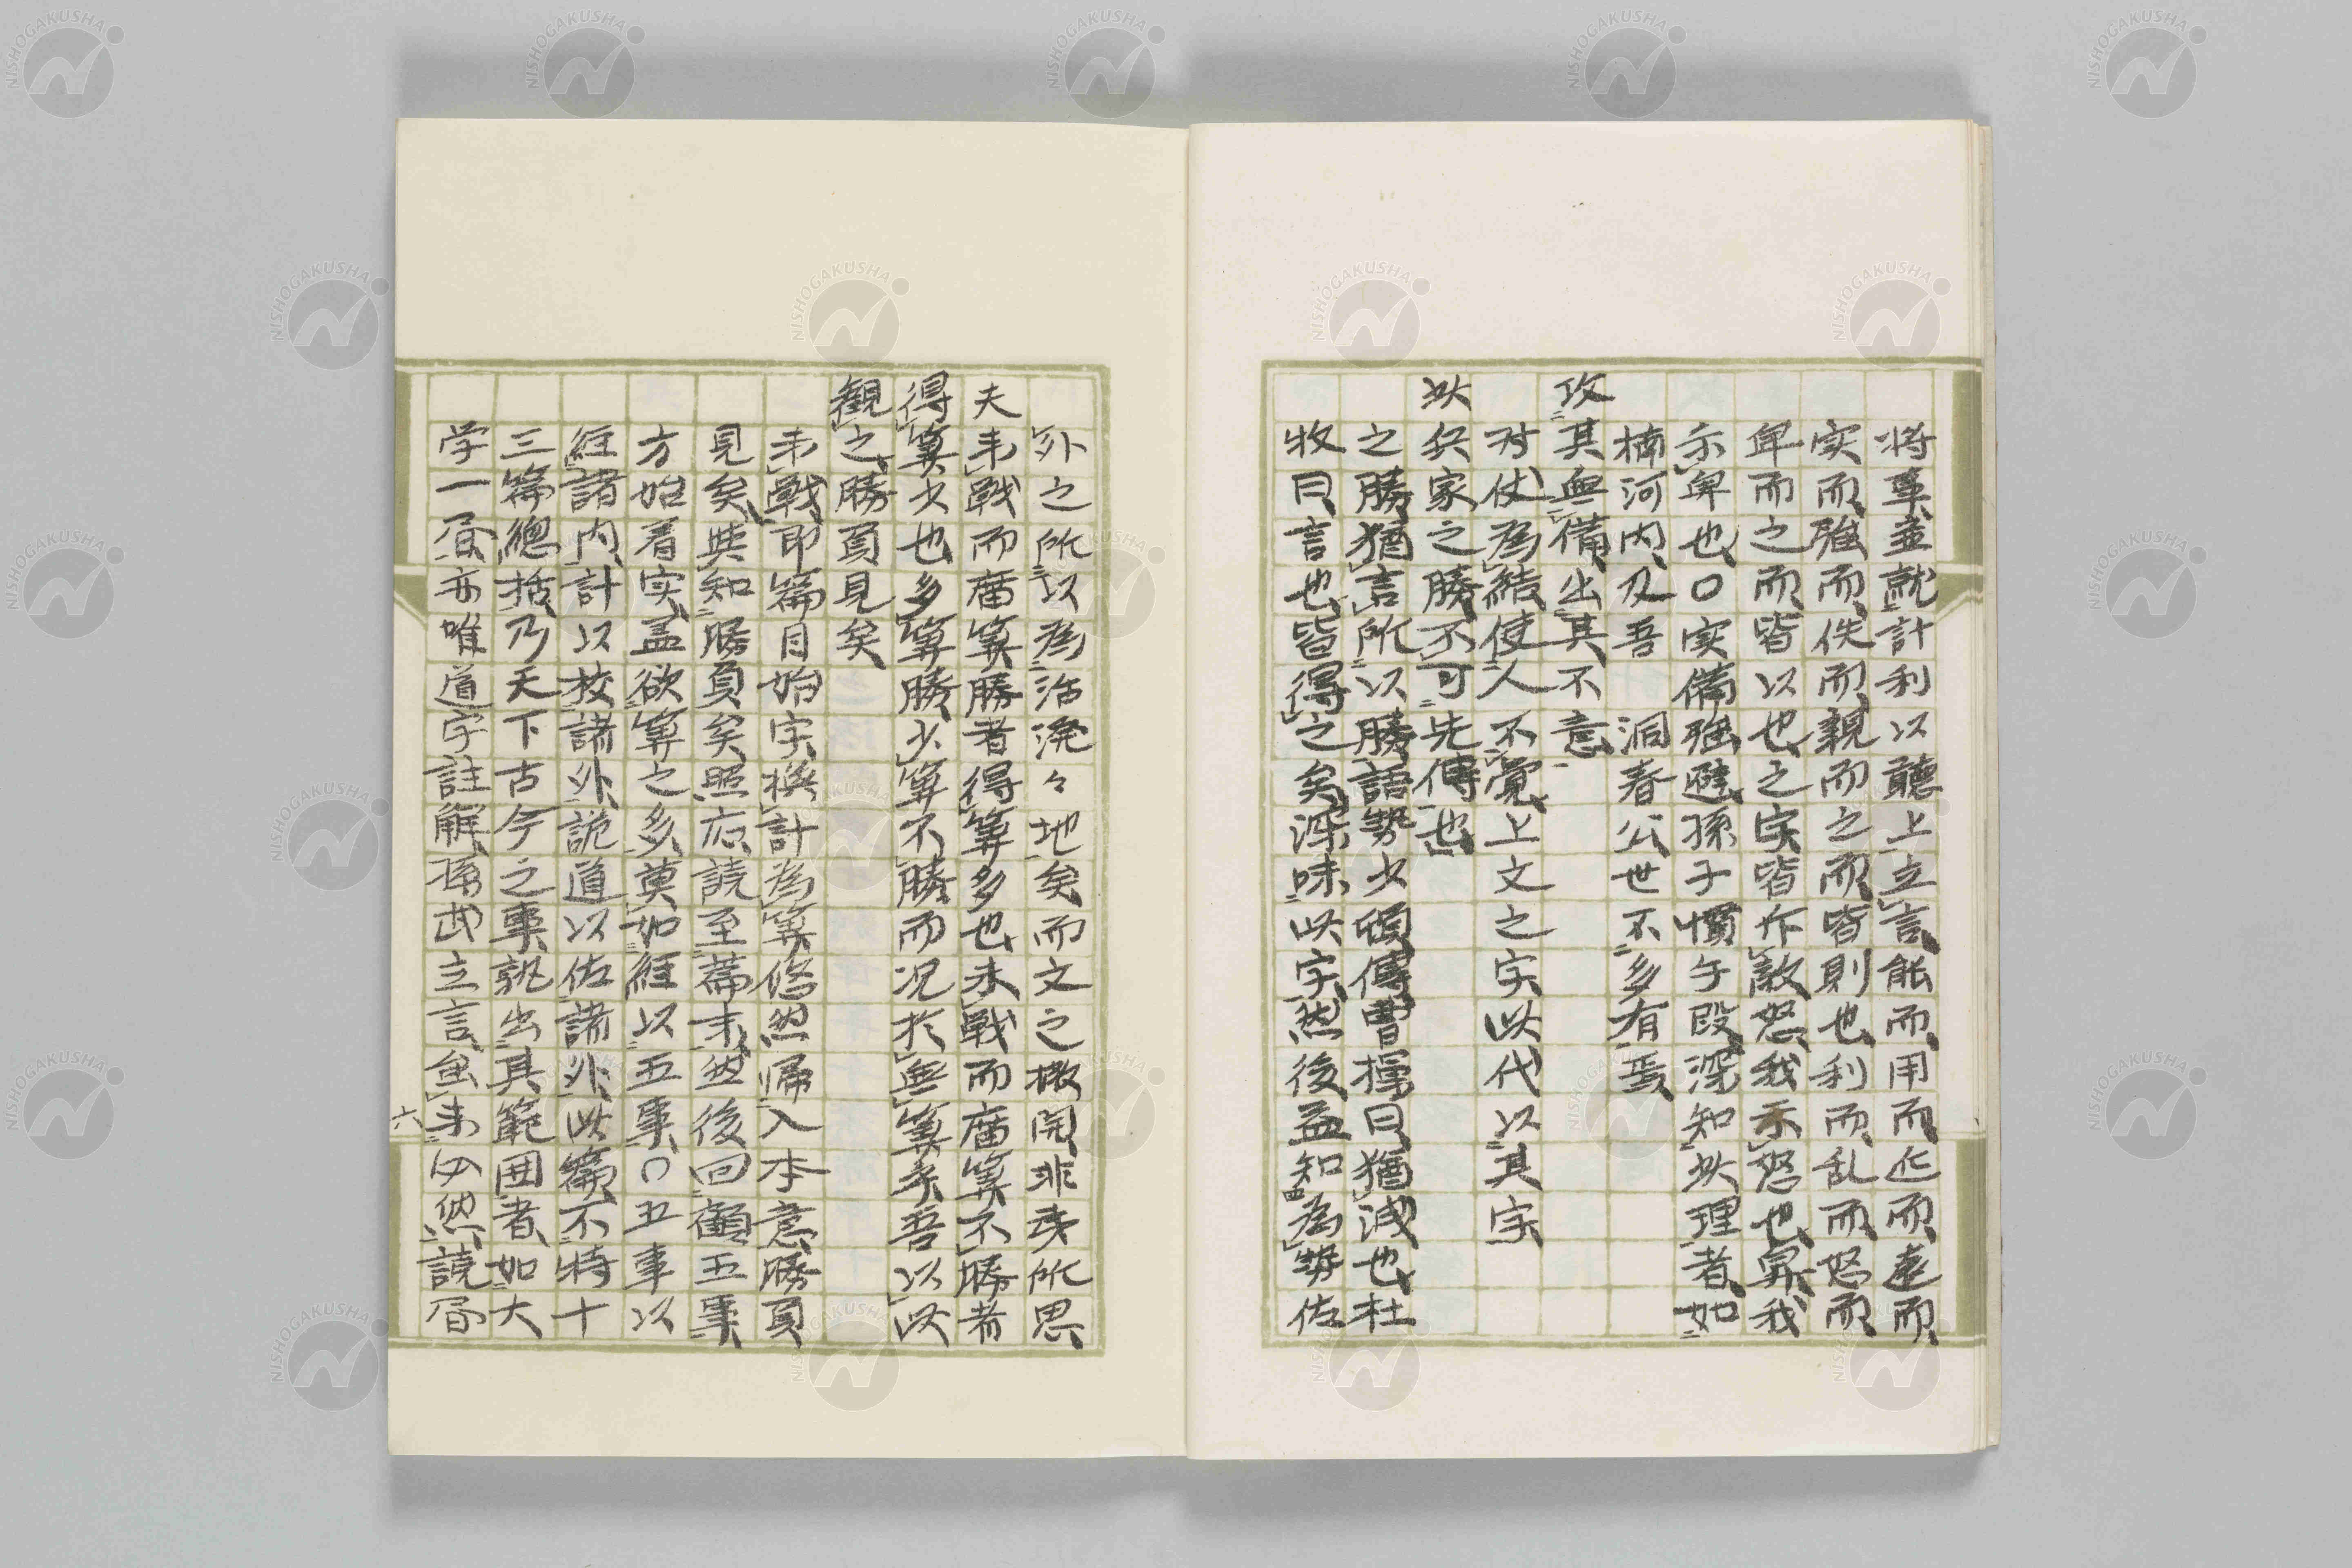 将事並就計利以聽上立言能而用而近而遠而
实而強而佚而親而之而皆則也利而乱而怒而
卑而之而皆以也之字皆作敵怒我示怒也卑我
示卑也〇实備強避孫子慣々段深知此理者如
楠河内及吾 洞春公世不多有焉
攻其無備出其不意
対仗為結使人不覚上文之字此代以其字
此兵家之勝不可先傳也
之勝猶言所以勝語勢少頓傳曹操曰猶洩也杜
牧曰言也皆得之矣深味此字然後益知為勢佐
外之所以為活溌々地矣而文之撒開非夷所思
夫未戦而廟算勝者得算多也未戦而廟算不勝者
得算少也多算勝少算不勝而况於無算乎吾以此
観之勝負見矣
未戦即篇目始字換計為算悠然帰入本意勝負
見矣與知勝負矣照応読至篇末然後回顧五事
方始着実盖欲算之多莫如経以五事〇五事以
経諸内計以校諸外詭道以佐諸外此篇不特十
三篇總括乃天下古今之事孰出其範囲者如大
学一層亦唯道字註解孫武立言虽未必然読層
六
NISHOGAKUSHA